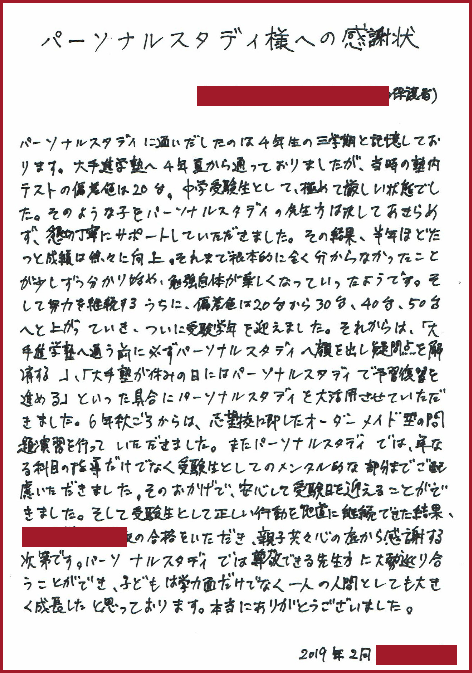 パーソナルスタディ様への感謝状
保護者)
パーソナルスタディに通いだしたのは4年生の三学期と記憶してお
ります。大手進学塾へ4年夏から通っておりましたが、当時の塾内
テストの偏差値は20台。中学受験生として、極めて厳しい状態でし
た。そのような子をパーソナルスタディの先生方は決してあきらめ
ず、懇切丁寧にサポートしていただきました。その結果、半年ほどた
つと成績は徐々に向上。それまで根本的に全く分からなかったこと
が少しずつ分かり始め、勉強自体が楽しくなっていったようです。そ
して努力を継続するうちに、偏差値は20台から30台、40台、50台
へと上がっていき、ついに受験学年を迎えました。それからは、「大
手進学塾へ通う前に必ずパーソナルスタディへ顔を出し疑問点を解
消する」、「大手塾が休みの日にはパーソナルスタディで予習復習を
進める」といった具合にパーソナルスタディを大活用させていただ
きました。6年秋ごろからは、志望校に即したオーダーメイド型の問
題演習を行っていただきました。またパーソナルスタディでは、単な
る科目の指導だけでなく受験生としてのメンタル的な部分までご配
慮いただきました。そのおかげで、安心して受験日を迎えることがで
きました。そして受験生として正しい行動を地道に継続できた結果、
の合格をいただき、親子共々心の底から感謝する
次第です。パーソナルスタディでは尊敬できる先生方に大勢巡り合
うことができ、子どもは学力面だけでなく一人の人間としても大き
く成長したと思っております。本当にありがとうございました。
2019年2月